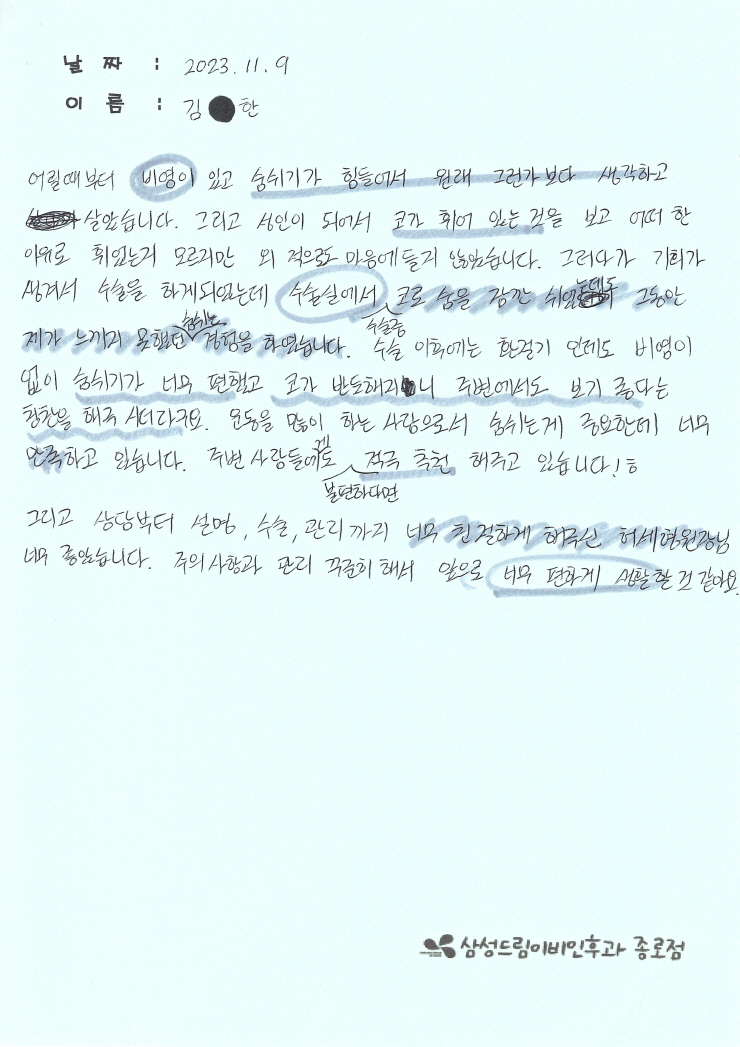 날 짜 : 2023. 11. 9
이 름 : 김 한
어릴때부터 비염이 있고 숨쉬기가 힘들어서 원래 그런가보다 생각하고
살았습니다. 그리고 성인이 되어서 코가 휘어 있는 것을 보고 어떠한
이유로 휘었는지 모르지만 외적으로도 마음에 들지 않았습니다. 그러다가 기회가
생겨서 수술을 하게되었는데 수술실에서 수술중 코로 숨을 잠깐 쉬었는데도 그동안
제가 느끼지 못했던 숨쉬는 경험을 하였습니다. 수술 이후에는 환절기 인데도 비염이
없이 숨쉬기가 너무 편했고 코가 반듯해지니 주변에서도 보기 좋다는
칭찬을 해주시더라구요. 운동을 많이 하는 사람으로서 숨쉬는게 중요한데 너무
만족하고 있습니다. 주변 사람들에게도 불편하다면 적극 추천 해주고 있습니다!ㅎ
그리고 상담부터 설명, 수술, 관리까지 너무 친절하게 해주신 허세형원장님
너무 좋았습니다. 주의사항과 관리 꾸준히 해서 앞으로 너무 편하게 생활할 것 같아요.
삼성드림이비인후과 종로점